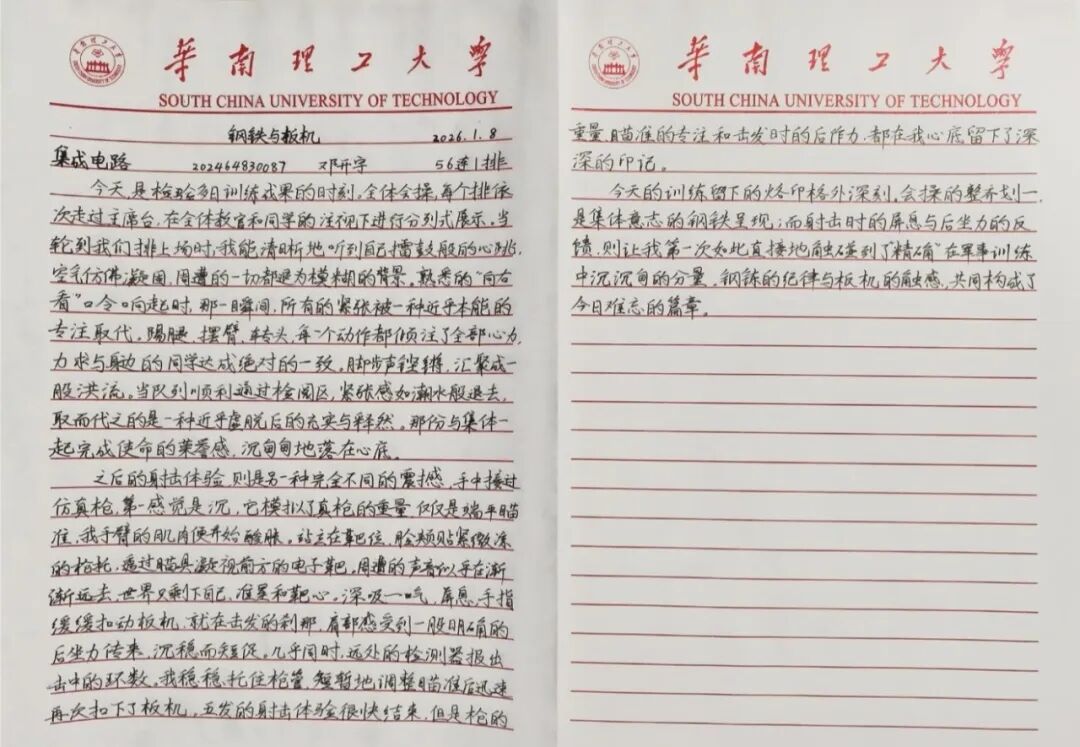 華南理工大學
SOUTH CHINA UNIVERSITY OF TECHNOLOGY
钢铁与板机 2026.1.8
集成电路 202464830087 邓开宇 56连1排
今天,是检验多日训练成果的时刻。全体会操,每个排依
次走过主席台,在全体教官和同学的注视下进行分列式展示。当
轮到我们排上场时,我能清晰地听到自己擂鼓般的心跳,
空气仿佛凝固,周遭的一切都退为模糊的背景。熟悉的“向右
看”口令响起时,那一瞬间,所有的紧张被一种近乎本能的
专注取代。踢腿,摆臂,转头,每一个动作都倾注了全部心力,
力求与身边的同学达成绝对的一致。脚步声铿锵,汇聚成一
股洪流。当队列顺利通过检阅区,紧张感如潮水般退去,
取而代之的是一种近乎虚脱后的充实与释然。那份与集体一
起完成使命的荣誉感,沉甸甸地落在心底。
之后的射击体验,则是另一种完全不同的震撼感,手中接过
仿真枪,第一感觉是沉,它模拟了真枪的重量,仅仅是端平瞄
准,我手臂的肌肉便开始酸胀。站立在靶位,脸颊贴紧微凉
的枪托,透过瞄具凝视前方的电子靶。周遭的声音似乎在渐
渐远去,世界只剩下自己,准星和靶心。深吸一气,屏息,手指
缓缓扣动板机,就在击发的刹那,肩部感受到一股明确的
后坐力传来,沉稳而短促。几乎同时,远处的检测器报出
击中的环数。我稳稳托住枪管,短暂地调整瞄准后迅速
再次扣下了板机。五发的射击体验很快结束,但是枪的
華南理工大學
SOUTH CHINA UNIVERSITY OF TECHNOLOGY
重量,瞄准的专注和击发时的后作力,都在我心底留下了深
深的印记。
今天的训练留下的烙印格外深刻。会操的整齐划一,
是集体意志的钢铁呈现;而射击时的屏息与后坐力的反
馈,则让我第一次如此直接地触碰到了“精确”在军事训练
中沉沉甸的分量。钢铁的纪律与板机的触感,共同构成了
今日难忘的篇章。